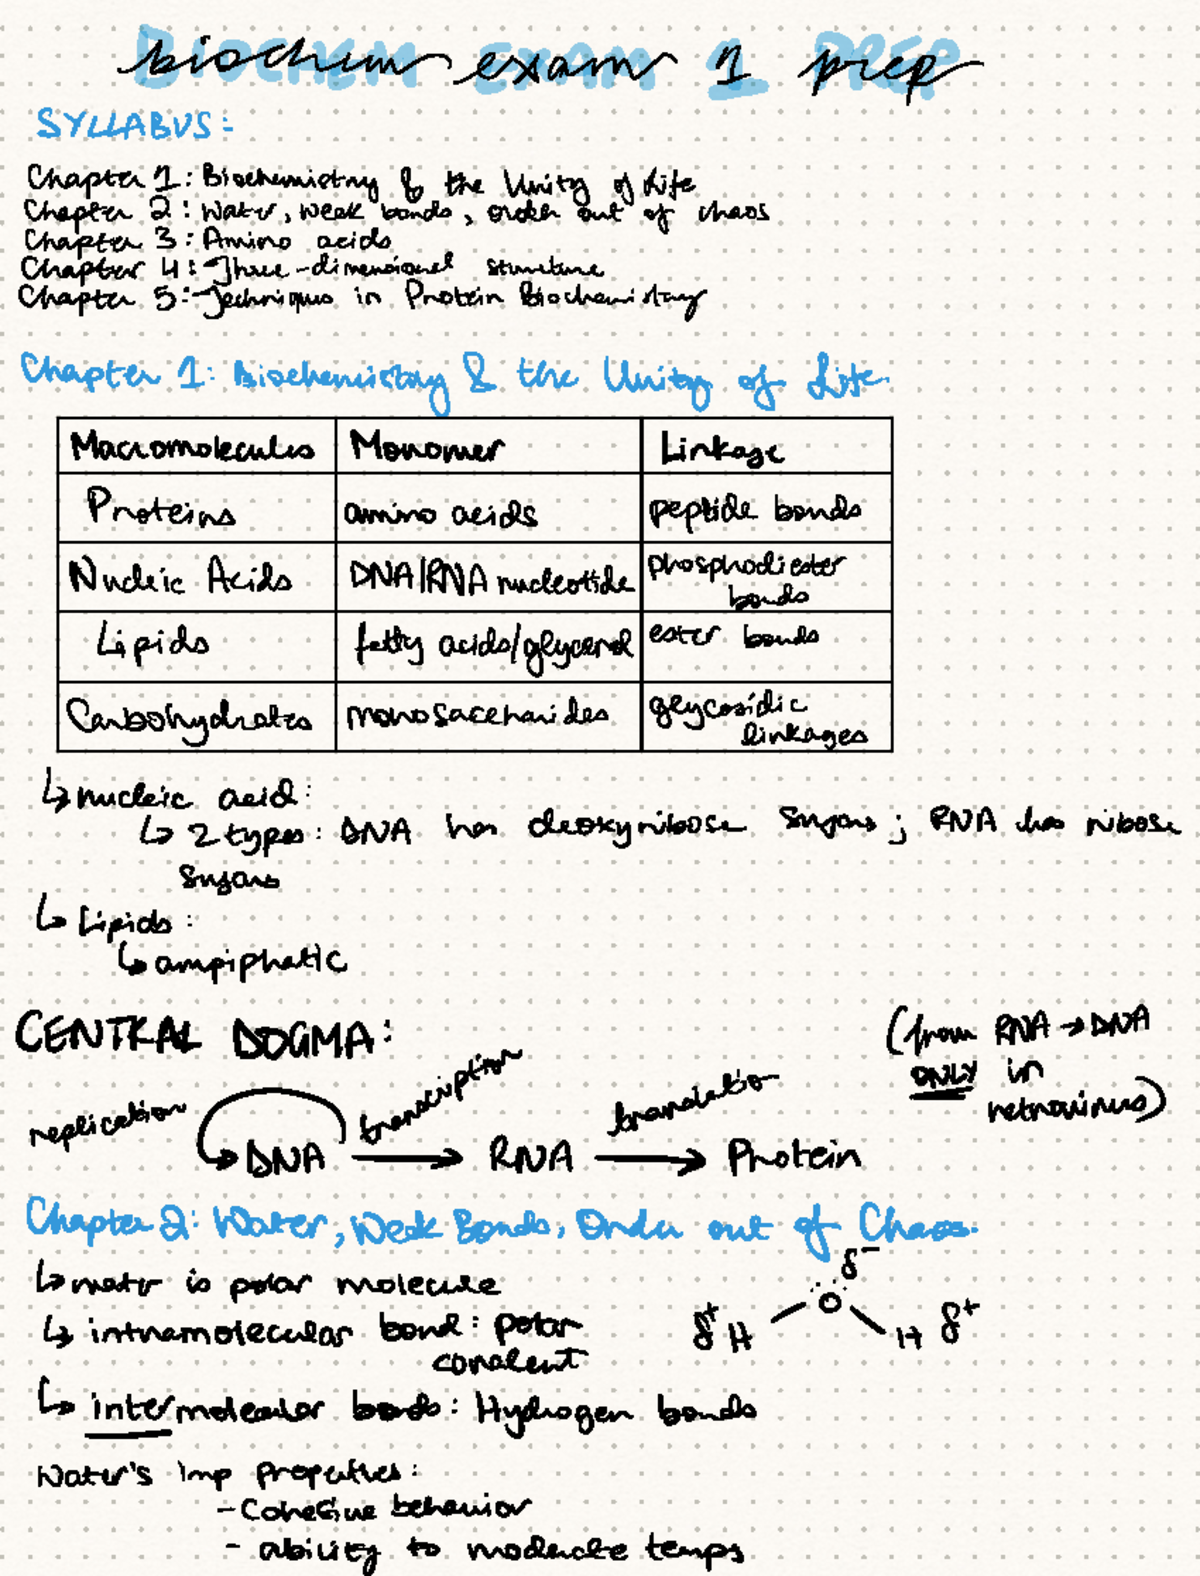 biochem exam 1 prep
SYLLABUS:
Chapter 1: Biochemistry & the Unity of Life
Chapter 2: Water, weak bonds, order out of chaos
Chapter 3: Amino acids
Chapter 4: Three-dimensional structure
Chapter 5: Techniques in Protein Biochemistry
Chapter 1: Biochemistry & the Unity of Life
Macromolecules Monomer Linkage
Proteins amino acids peptide bonds
Nucleic Acids DNA/RNA nucleotide phosphodiester bonds
Lipids fatty acids/glycerol ester bonds
Carbohydrates monosaccharides glycosidic linkages
↳ nucleic acid:
↳ 2 types: DNA has deoxyribose sugars; RNA has ribose
sugars
↳ Lipids:
↳ ampiphatic
CENTRAL DOGMA:
(from RNA → DNA
ONLY in
retrovirus)
replication transcription translation
DNA → RNA → Protein
Chapter 2: Water, Weak Bonds, Order out of Chaos.
↳ water is polar molecule
↳ intramolecular bond: polar
covalent
δ⁻
δ⁺ H O H δ⁺
↳ intermolecular bonds: Hydrogen bonds
Water's imp properties:
- Cohesive behavior
- ability to moderate temps